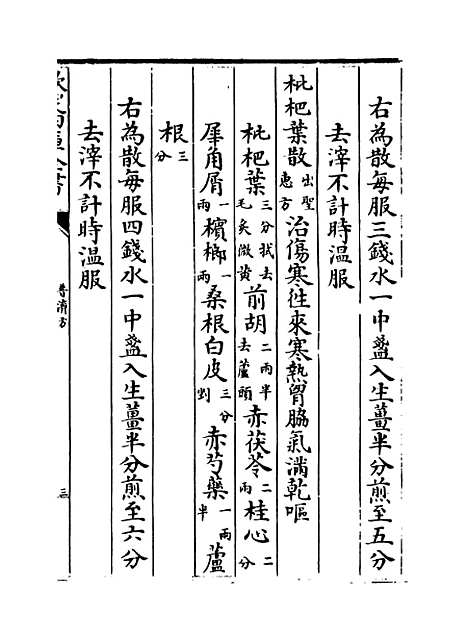 右為散每服三錢水一中盞入生薑半分煎至五分
去滓不計時温服
枇杷葉散出聖惠方治傷寒往來寒熱胷脇氣滿乾嘔
枇杷葉三分拭去毛炙微黄前胡二兩半去蘆頭赤茯苓二兩桂心二分
犀角屑一兩檳榔一兩桑根白皮三分剉赤芍藥一兩半蘆
根三分
右為散每服四錢水一中盞入生薑半分煎至六分
去滓不計時温服
欽定四庫全書
普濟方
三